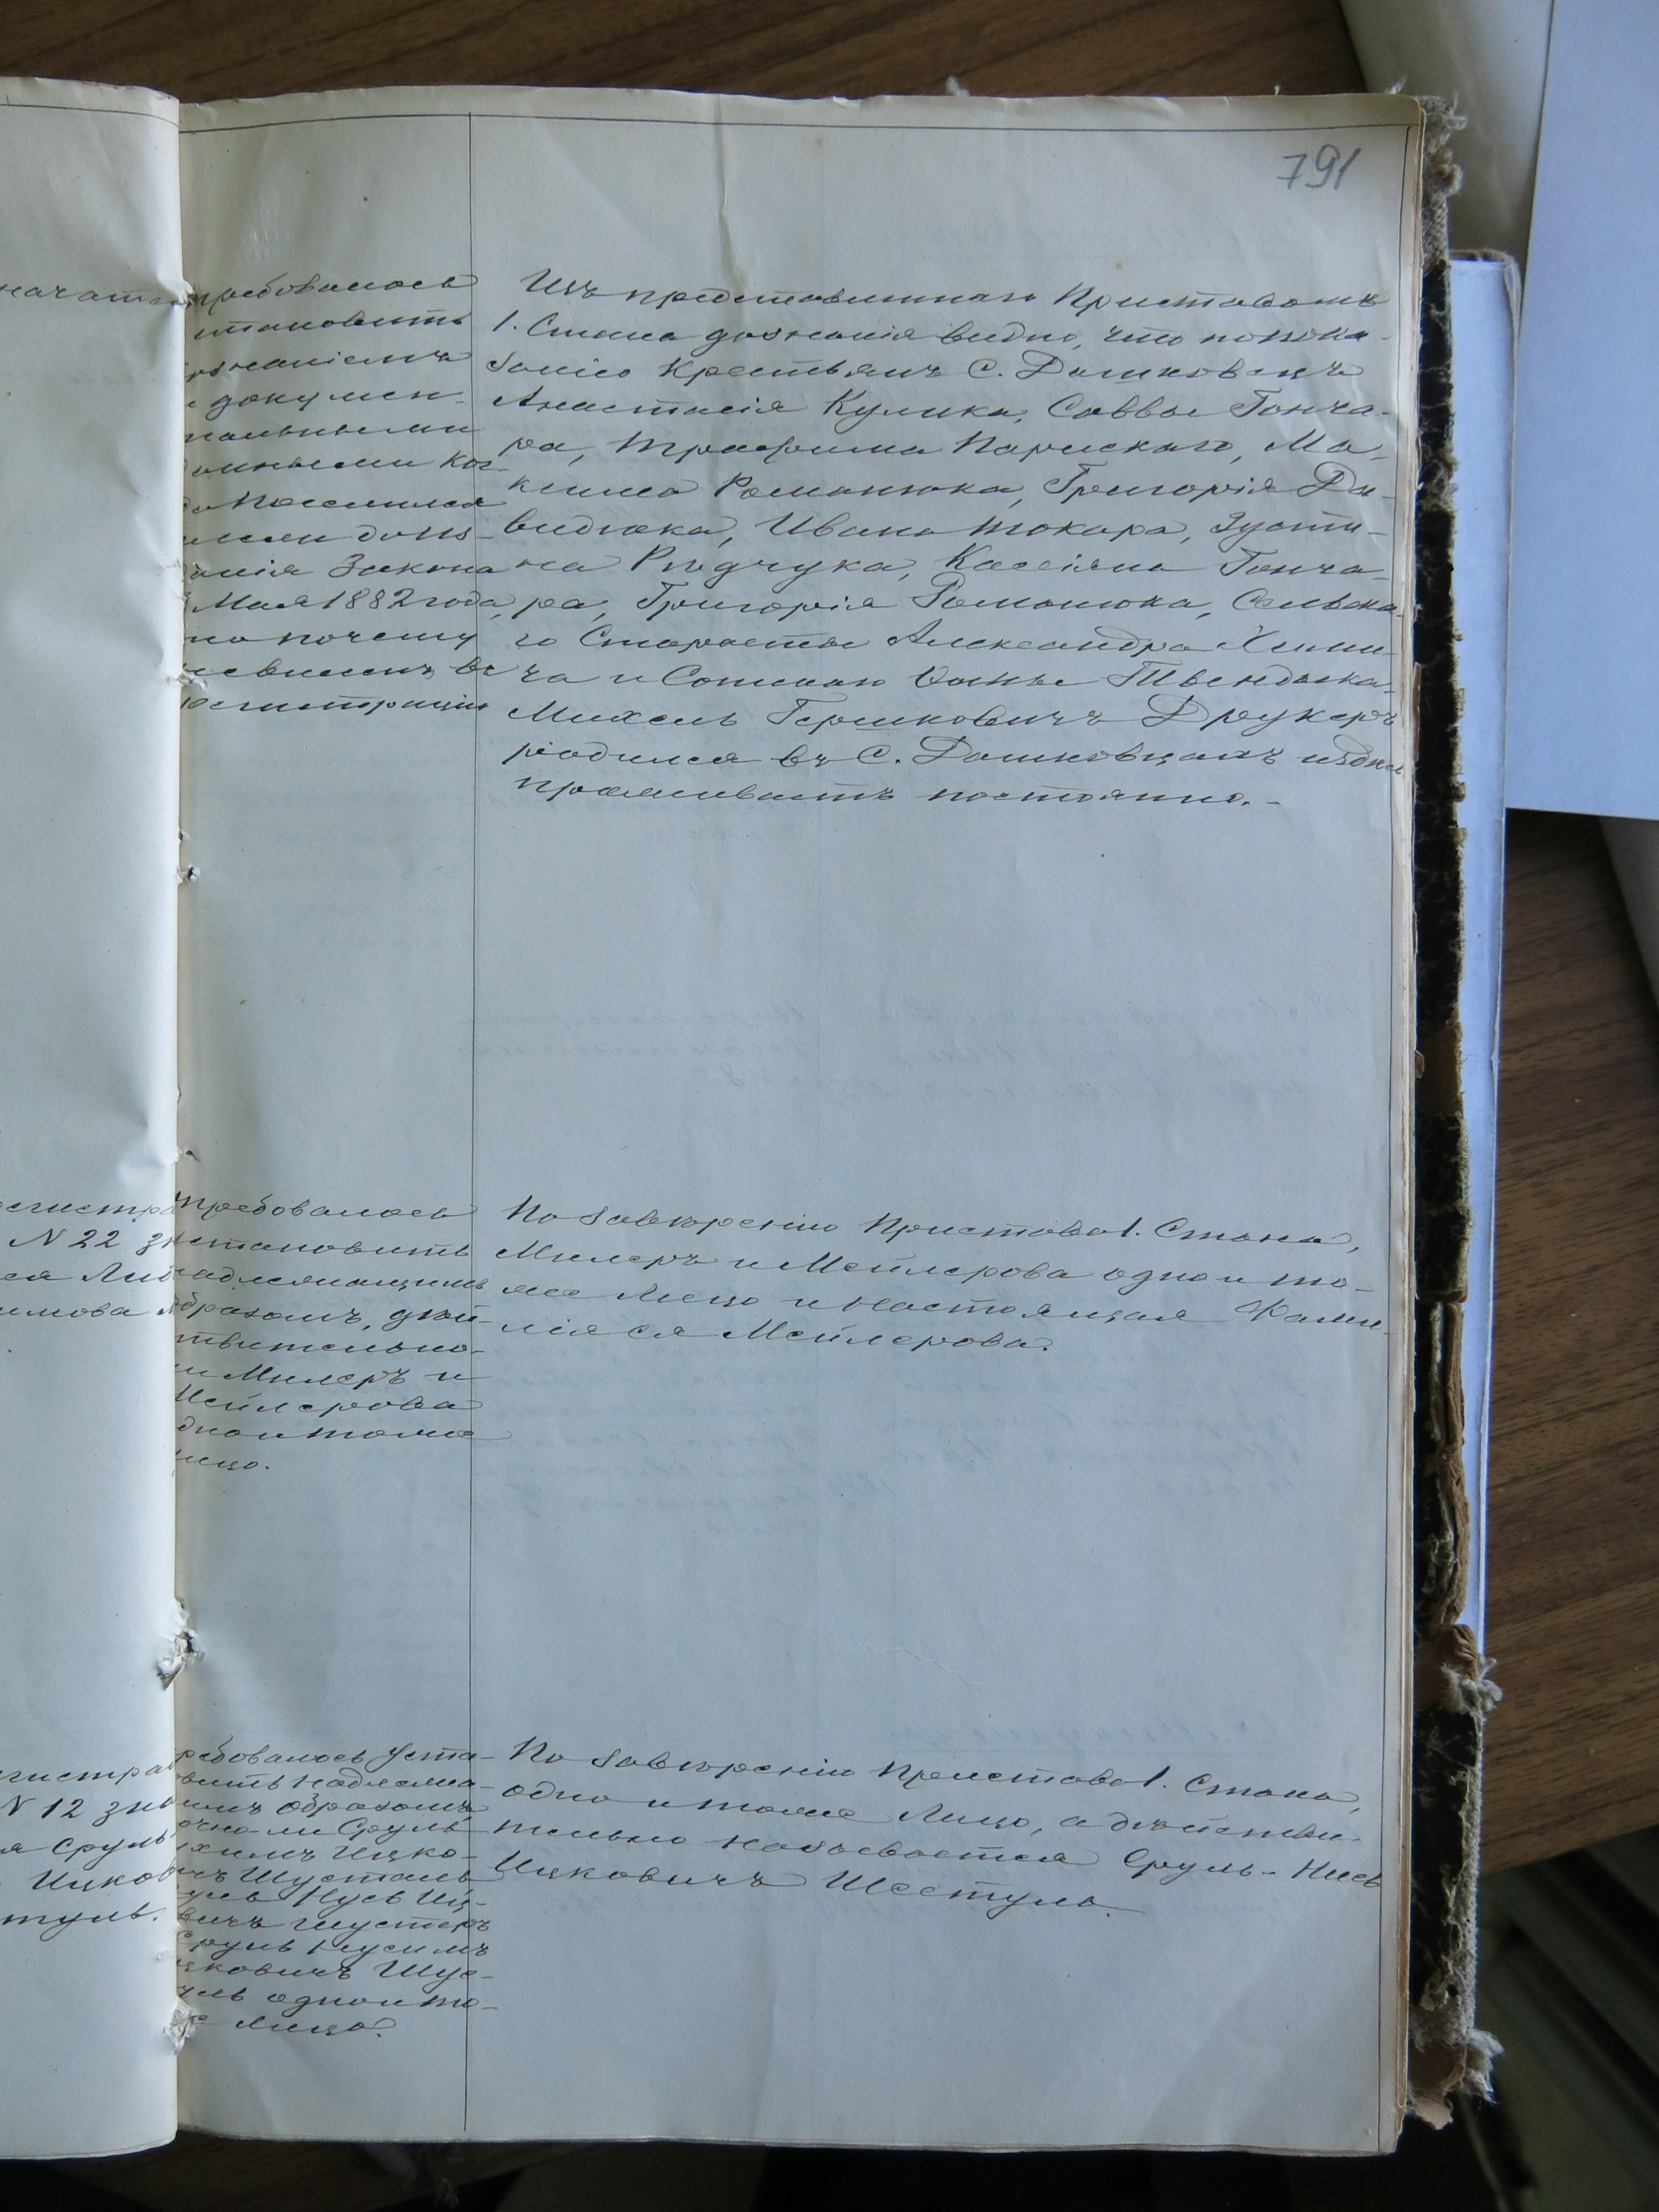 791
требовалось
становить
ознаніемъ
и докумен-
тальными
данными ког-
да поселился
до изд-
анія Закона
3 Мая 1882 года,
но почему
въ
регистрацію
Изъ представленнаго Приставомъ
1. Стана дознанія видно, что по пока-
занію крестьянъ С. Дашковецъ
Анастасія Кулика, Саввы Гонча-
ра, Трофима Парискаго, Ма-
ксима Романюка, Григорія Да-
видюка, Ивана Токара, Іусти-
на Рыдчука, Кассіяна Гонча-
ра, Григорія Романюка, Сельска-
го Старосты Александра Хими-
ча и Сотскаго
Михель Гершковичъ Друкеръ
родился въ С. Дашковцахъ и здѣсь
проживаетъ постоянно.-
егистра
N 22 зн
ся Ли
имова
требовалось
становить
надлежащимъ
образомъ, дѣй-
твительно-
ли Милеръ и
Мейлерова
дно и тоже
лицо.
По завѣренію Пристава 1. Стана,
Милеръ и Мейлерова одно и то-
же лицо и настоящая Фами-
лія ея Мейлерова.
гистра
N 12 зн
я Сруль
Ицков
туль.
ребовалось уста-
вить надлежа-
имъ образомъ,
очно-ли Сруль
химъ Ицко-
ичъ Шусталь
уль Нусь Иц-
вичъ Шустеръ
Сруль Нусимъ
цковичъ Шус-
ль одно и то-
е лицо.
По завѣренію Пристава 1. Стана,
одно и тоже Лицо, а дѣйстви-
тельно называется Сруль-Нись
Ицковичъ Шестуль.